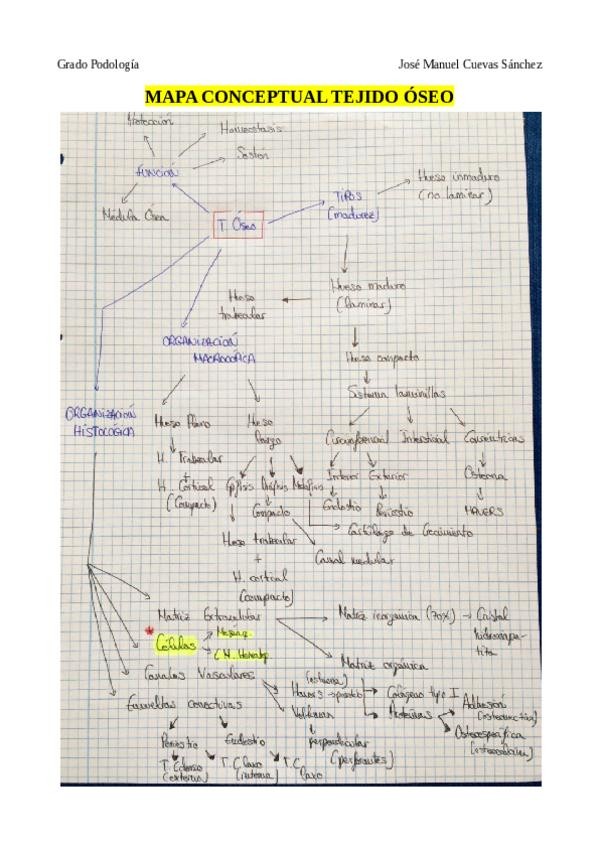 Grado Podología
José Manuel Cuevas Sánchez
MAPA CONCEPTUAL TEJIDO ÓSEO
Protección
Homeostasis
Sostén
FUNCIÓN
Médula Ósea
T. Óseo
TIPOS
(madurez)
Hueso inmaduro
(no laminar)
Hueso maduro
(laminar)
Hueso
trabecular
ORGANIZACIÓN
MACROSCÓPICA
Hueso compacto
Sistema laminillas
ORGANIZACIÓN
HISTOLÓGICA
Hueso Plano
Hueso
largo
Circunferencial
Intersticial
Concéntricas
H. Trabecular
+
H. Cortical
(Compacto)
Epífisis
Diáfisis
Metáfisis
Interior
Exterior
Osteona
Compacto
Endostio
Periostio
HAVERS
Cartílago de Crecimiento
Hueso trabecular
+
H. cortical
(compacto)
Canal medular
Matriz Extracelular
Matriz inorgánica (70%) → Cristal
hidroxiapa-
tita
*
Células
C. M. Hematop.
Matriz orgánica
Canales Vasculares
(osteona)
Havers
Colágeno tipo I
Volkmann
Proteínas
Adhesión
(osteonectina)
Osteoespecífica
(osteocalcina)
Envueltas conectivas
Periostio
Endostio
perpendicular
(perforantes)
T. C. Denso
(externa)
T. C. Laxo
(interna)
T. C.
Laxo